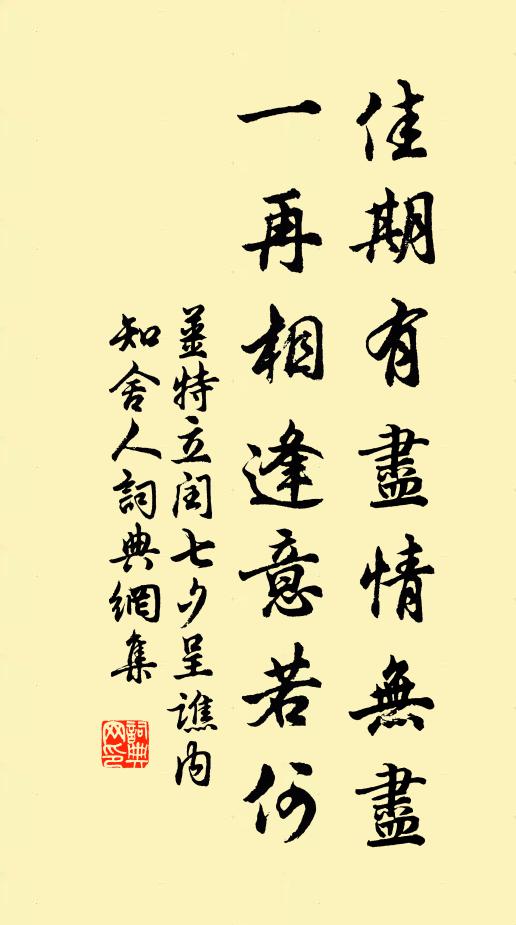 佳期有盡情無盡
一再相逢意若何
姜特立閏七夕呈譙內
知舍人詞典網集
詞典
网印